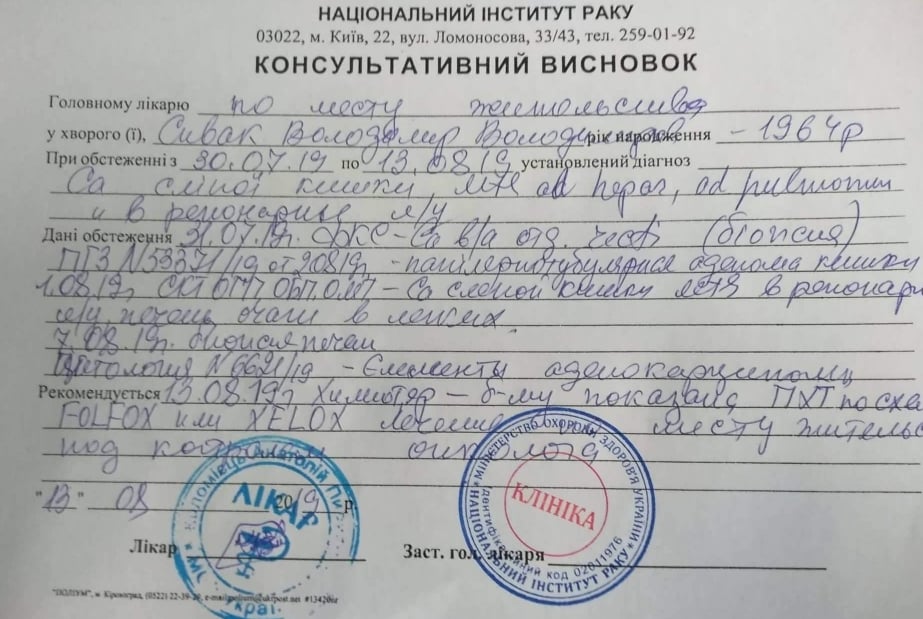 НАЦІОНАЛЬНИЙ ІНСТИТУТ РАКУ
03022, м. Київ, 22, вул. Ломоносова, 33/43, тел. 259-01-92
КОНСУЛЬТАТИВНИЙ ВИСНОВОК
Головному лікарю по месту жительства
у хворого (ї), Сивак Володимир Володимирович рік народження - 1964р
При обстеженні з 30.07.19 по 13.08.19 установлений діагноз
Са сліпої кишки, mts ad hepar, ad pulmonum
и в регионарные л/у
Дані обстеження 31.07.19г. ФКС - Са в/а отд. (біопсия)
ПГЗ N53371/19 от 9.08.19г. - аденома кишки
1.08.19г. СКТ ОГП, ОБП, ОМТ - Са слепой кишки mts в регионарн
л/у, печень, очаги в легких.
7.08.19г. биопсия печени
Цитология N6621/19 - Єлементы аденокарциномы
Рекомендується 13.08.19г. Химиотер - б-му показана ПХТ по схе
FOLFOX или XELOX лечение месту жительс
под контролем онколога
"13" 08 2019 р.
Лікар Заст. гол. лікаря
ЛІКАР
Коломієць Анатолій
МІНІСТЕРСТВО ОХОРОНИ ЗДОРОВ'Я УКРАЇНИ
НАЦІОНАЛЬНИЙ ІНСТИТУТ РАКУ
Ідентифікаційний код 02011976
КЛІНІКА
"ПОЛІУМ", м. Кіровоград, (0522) 22-39-